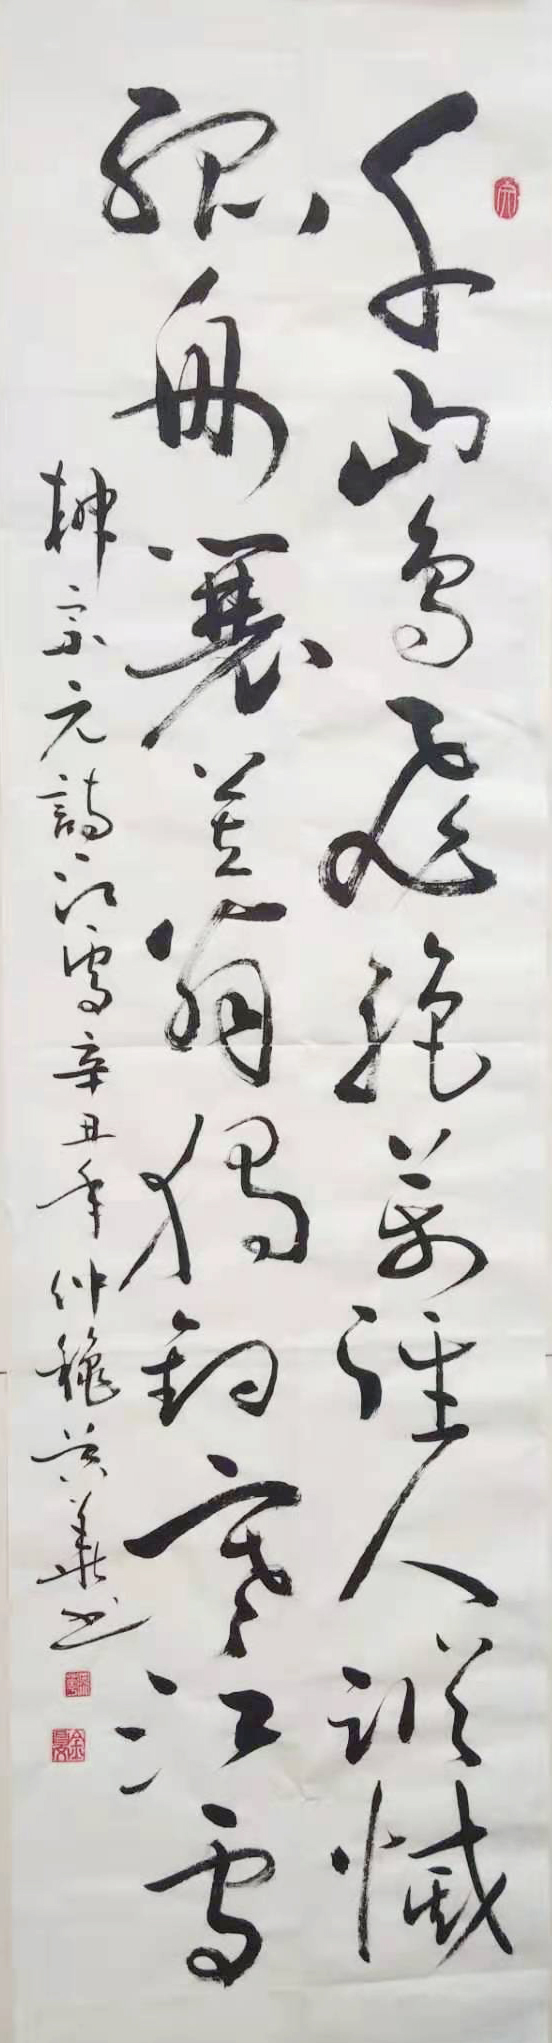 千山鳥飛絕萬徑人蹤滅
孤舟蓑笠翁獨釣寒江雪
柳宗元詩江雪辛丑年仲龝華书